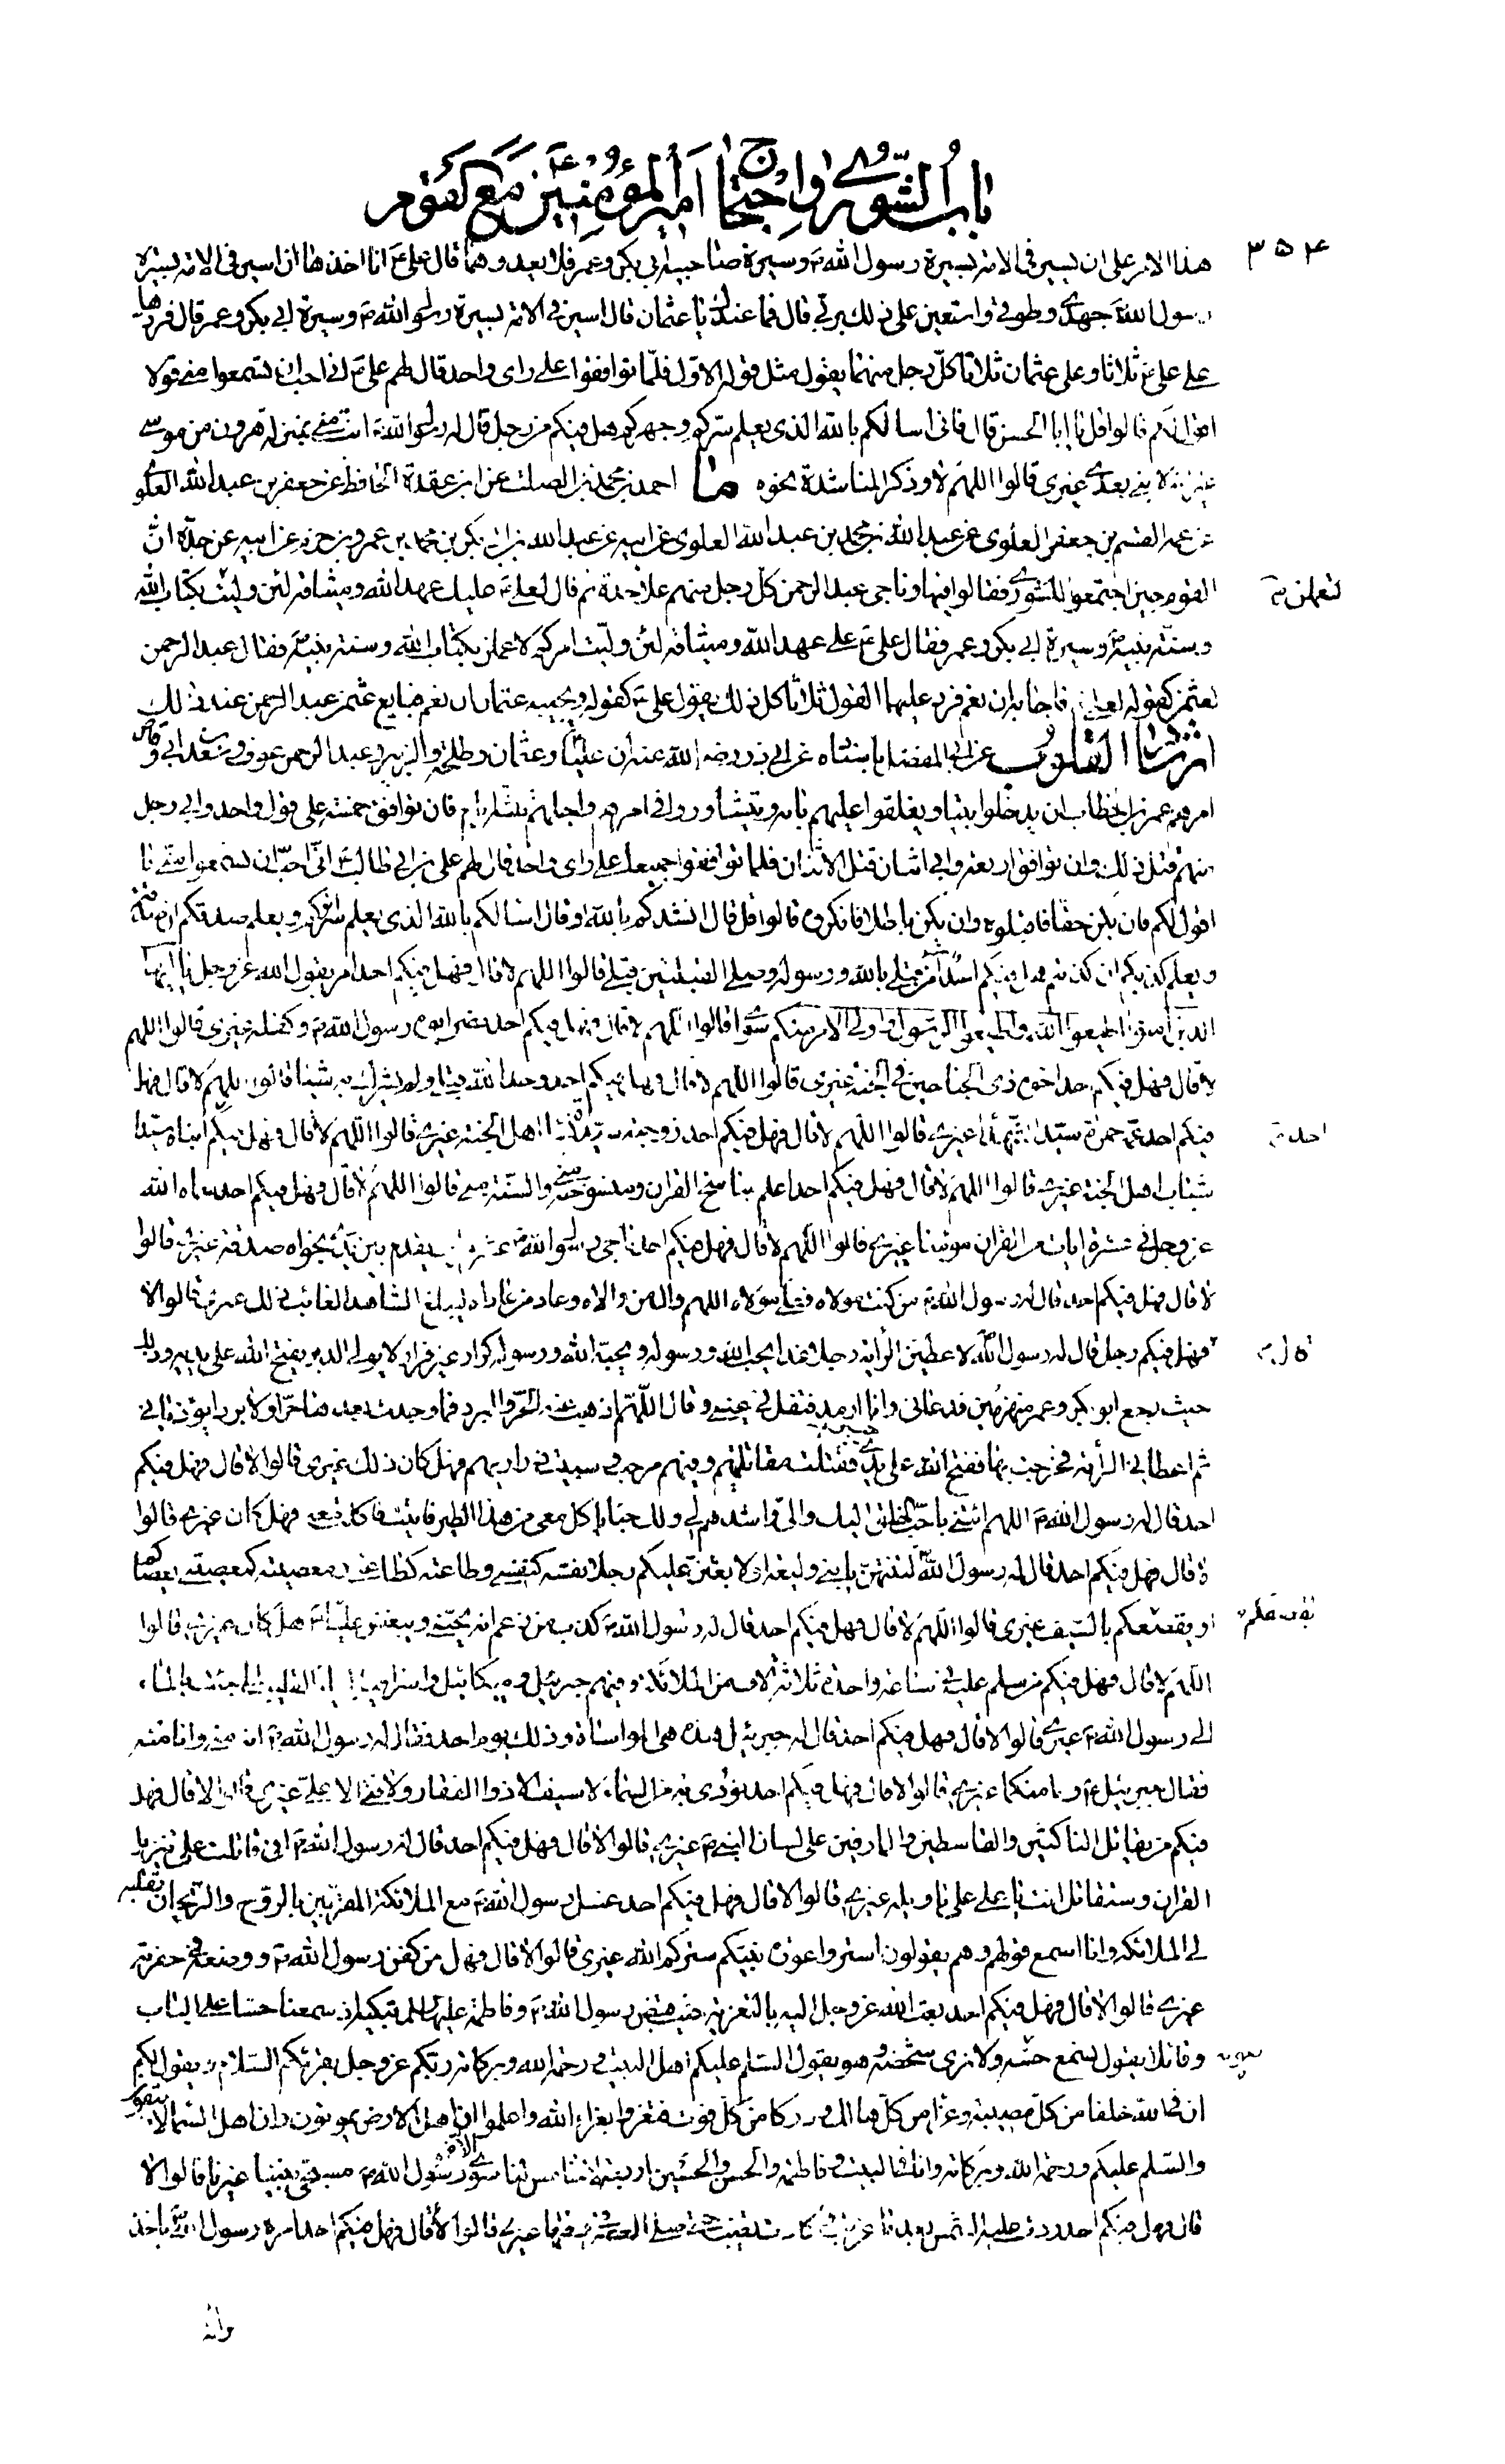 باب الشورى واحتجاج امير المؤمنين مع القوم
۳۵۴
هذا الامر على ان يسير فى الامة بسيرة رسول الله ص وسيرة صاحبيه ابى بكر وعمر فلا يعدوهما قال على ع انا اخذها ان اسير فى الامة بسيرة
رسول الله ص جهدى وطوقى واستعين على ذلك بربى قال فما عندك يا عثمان قال اسير فى الامة بسيرة رسول الله ص وسيرة ابى بكر وعمر قال فردها
على على ع ثلاثا وعلى عثمان ثلاثا كل رجل منهما يقول مثل قوله الاول فلما توافقوا على راى واحد قال لهم على ع انى احب ان تسمعوا منى قولا
اقول لكم قالوا قل يا ابا الحسن قال فانى اسالكم بالله الذى يعلم سركم وجهركم هل فيكم من رجل قال له رسول الله ص انت منى بمنزلة هرون من موسى
غير انه لا نبى بعدى غيرى قالوا اللهم لا وذكر المناشدة نحوه ما احمد بن محمد بن الصلت عن ابن عقدة الحافظ عن جعفر بن عبد الله العلوى
عن عمه القسم بن جعفر العلوى عن عبد الله بن محمد بن عبد الله العلوى عن ابيه عن عبد الله بن ابى بكر بن محمد بن عمرو بن حزم عن ابيه عن جده ان
القوم حين اجتمعوا للشورى فقالوا فيها وناجى عبد الرحمن كل رجل منهم على حدة ثم قال لعلى ع عليك عهد الله وميثاقه لئن وليت بكتاب الله
لتعملن
وسنة نبيه ص وسيرة ابى بكر وعمر فقال على ع على عهد الله وميثاقه لئن وليت امركم لاعملن بكتاب الله وسنة نبيه ص فقال عبد الرحمن
لعثمن كقوله لعلى ع فاجابه ان نعم فرد عليهما القول ثلاثا كل ذلك يقول على ع كقوله ويجيبه عثمان ان نعم فبايع عثمن عبد الرحمن عند ذلك
ارشاد القلوب عن ابى المفضل باسناده عن ابى ذر رضى الله عنه ان عليا ع وعثمان وطلحة والزبير وعبد الرحمن بن عوف وسعد بن ابى وقاص
امرهم عمر بن الخطاب ان يدخلوا بيتا ويغلقوا عليهم بابه ويتشاوروا فى امرهم واجلهم ثلثة ايام فان توافق خمسة على قول واحد وابى رجل
منهم قتل ذلك وان توافق اربعة وابى اثنان قتل الاثنان فلما توافقوا جميعا على راى واحد قال لهم على بن ابى طالب ع انى احب ان تسمعوا منى ما
اقول لكم فان يكن حقا فاقبلوه وان يكن باطلا فانكروه قالوا قل قال انشدكم بالله او قال اسالكم بالله الذى يعلم سرائركم ويعلم صدقكم ان صدقتم
ويعلم كذبكم ان كذبتم هل فيكم احد امن قبلى بالله ورسوله وصلى القبلتين قبلى قالوا اللهم لا قال فهل فيكم احد من يقول الله عز وجل يا ايها
الذين امنوا اطيعوا الله واطيعوا الرسول واولى الامر منكم سواى قالوا اللهم لا قال فهل فيكم احد نصر ابوه رسول الله ص وكفله غيرى قالوا اللهم
لا قال فهل فيكم احد اخوه ذى الجناحين فى الجنة غيرى قالوا اللهم لا قال فهل فيكم احد وحد الله قبلى ولم يشرك به شيئا قالوا اللهم لا قال فهل
فيكم احد عمه حمزة سيد الشهداء غيرى قالوا اللهم لا قال فهل فيكم احد زوجته سيدة نساء اهل الجنة غيرى قالوا اللهم لا قال فهل فيكم ابناه سيدا
احد
شباب اهل الجنة غيرى قالوا اللهم لا قال فهل فيكم احد اعلم بناسخ القران ومنسوخه منى والسنة منى قالوا اللهم لا قال فهل فيكم احد سماه الله
عز وجل فى عشرة ايات من القران مؤمنا غيرى قالوا اللهم لا قال فهل فيكم احد ناجى رسول الله ص عشر مرات يقدم بين يدى نجواه صدقة غيرى قالوا
لا قال فهل فيكم احد قال له رسول الله ص من كنت مولاه فعلى مولاه اللهم وال من والاه وعاد من عاداه ليبلغ الشاهد الغائب ذلك غيرى قالوا لا
فهل فيكم رجل قال له رسول الله ص لاعطين الراية رجلا غدا يحب الله ورسوله ويحبه الله ورسوله كرار غير فرار لا يولى الدبر يفتح الله على يديه وذلك
قال
حيث رجع ابو بكر وعمر منهزمين فدعانى وانا ارمد فتفل فى عينى وقال اللهم اذهب عنه الحر والبرد فما وجدت بعدها حرا ولا بردا يؤذيانى
ثم اعطانى الراية فخرجت بها ففتح الله على يدى خيبر فقتلت مقاتليهم وفيهم مرحب وسبيت ذراريهم فهل كان ذلك غيرى قالوا لا قال فهل فيكم
احد قال له رسول الله ص اللهم ائتنى باحب الخلق اليك والى واشدهم لى ولك حبا ياكل معى من هذا الطير فاتيت فاكلت معه فهل كان غيرى قالوا
لا قال فهل فيكم احد قال له رسول الله ص لتنتهن يا بنى وليعة او لابعثن عليكم رجلا نفسه كنفسى وطاعته كطاعتى ومعصيته كمعصيتى يعصاكم
او يقصعكم بالسيف غيرى قالوا اللهم لا قال فهل فيكم احد قال له رسول الله ص كذب من زعم انه يحبنى ويبغض عليا ع هل كان غيرى قالوا
اللهم لا قال فهل فيكم من سلم عليه فى ساعة واحدة ثلاثة الاف من الملائكة وفيهم جبرئيل وميكائيل واسرافيل ليلة القليب لما جئت بالماء
الى رسول الله ص غيرى قالوا لا قال فهل فيكم احد قال له جبرئيل هذه هى المواساة وذلك يوم احد فقال له رسول الله ص انه منى وانا منه
فقال جبرئيل ع وانا منكما غيرى قالوا لا قال فهل فيكم احد نودى به من السماء لا سيف الا ذو الفقار ولا فتى الا على غيرى قالوا لا قال فهل
فيكم من يقاتل الناكثين والقاسطين والمارقين على لسان النبى ص غيرى قالوا لا قال فهل فيكم احد قال له رسول الله ص انى قاتلت على تنزيل
القران وستقاتل انت يا على على تاويله غيرى قالوا لا قال فهل فيكم احد غسل رسول الله ص مع الملائكة المقربين بالروح والريحان تقلبه
لى الملائكة وانا اسمع قولهم وهم يقولون استروا عورة نبيكم ستركم الله غيرى قالوا لا قال فهل من كفن رسول الله ص ووضعه فى حفرته
غيرى قالوا لا قال فهل فيكم احد بعث الله عز وجل اليه بالتعزية حيث قبض رسول الله ص وفاطمة عليها السلام تبكيه اذ سمعنا حسا على الباب
وقائلا يقول نسمع حسه ولا نرى شخصه وهو يقول السلم عليكم اهل البيت ورحمة الله وبركاته ربكم عز وجل يقرئكم السلام ويقول لكم
ان فى الله خلفا من كل مصيبة وعزاء من كل هالك ودركا من كل فوت فتعزوا بعزاء الله واعلموا ان اهل الارض يموتون وان اهل السماء لا يبقون
والسلم عليكم ورحمة الله وبركاته وانا فى البيت وفاطمة والحسن والحسين اربعة لا خامس لنا سوى رسول الله ص مسجى بيننا غيرنا قالوا لا
قال فهل فيكم احد ردت عليه الشمس بعد ما غربت او كادت تغيب حتى صلى العصر فى وقتها غيرى قالوا لا قال فهل فيكم احد امره رسول الله ص باخذ